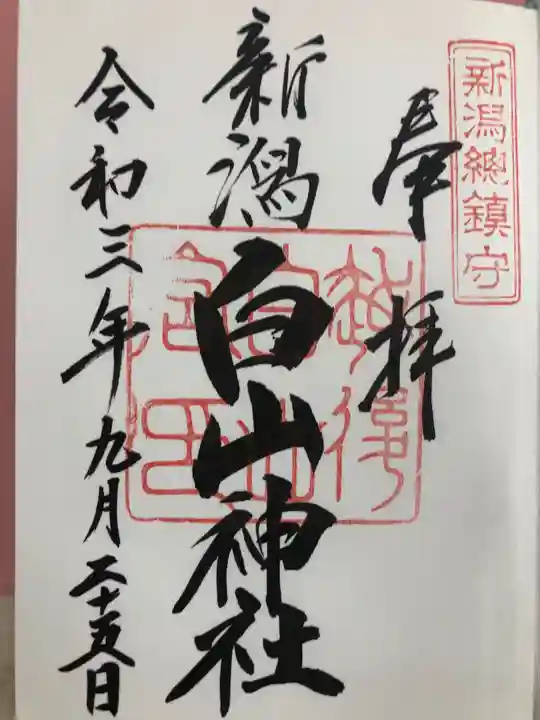 新潟總鎮守
奉拝
新潟白山神社
令和三年九月二十五日